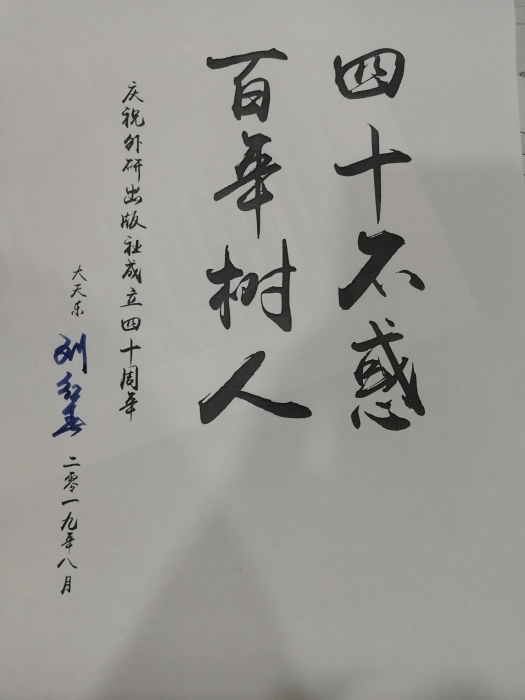 四十不惑
百年树人
庆祝外研出版社成立四十周年
大天乐
刘
二零一九年八月